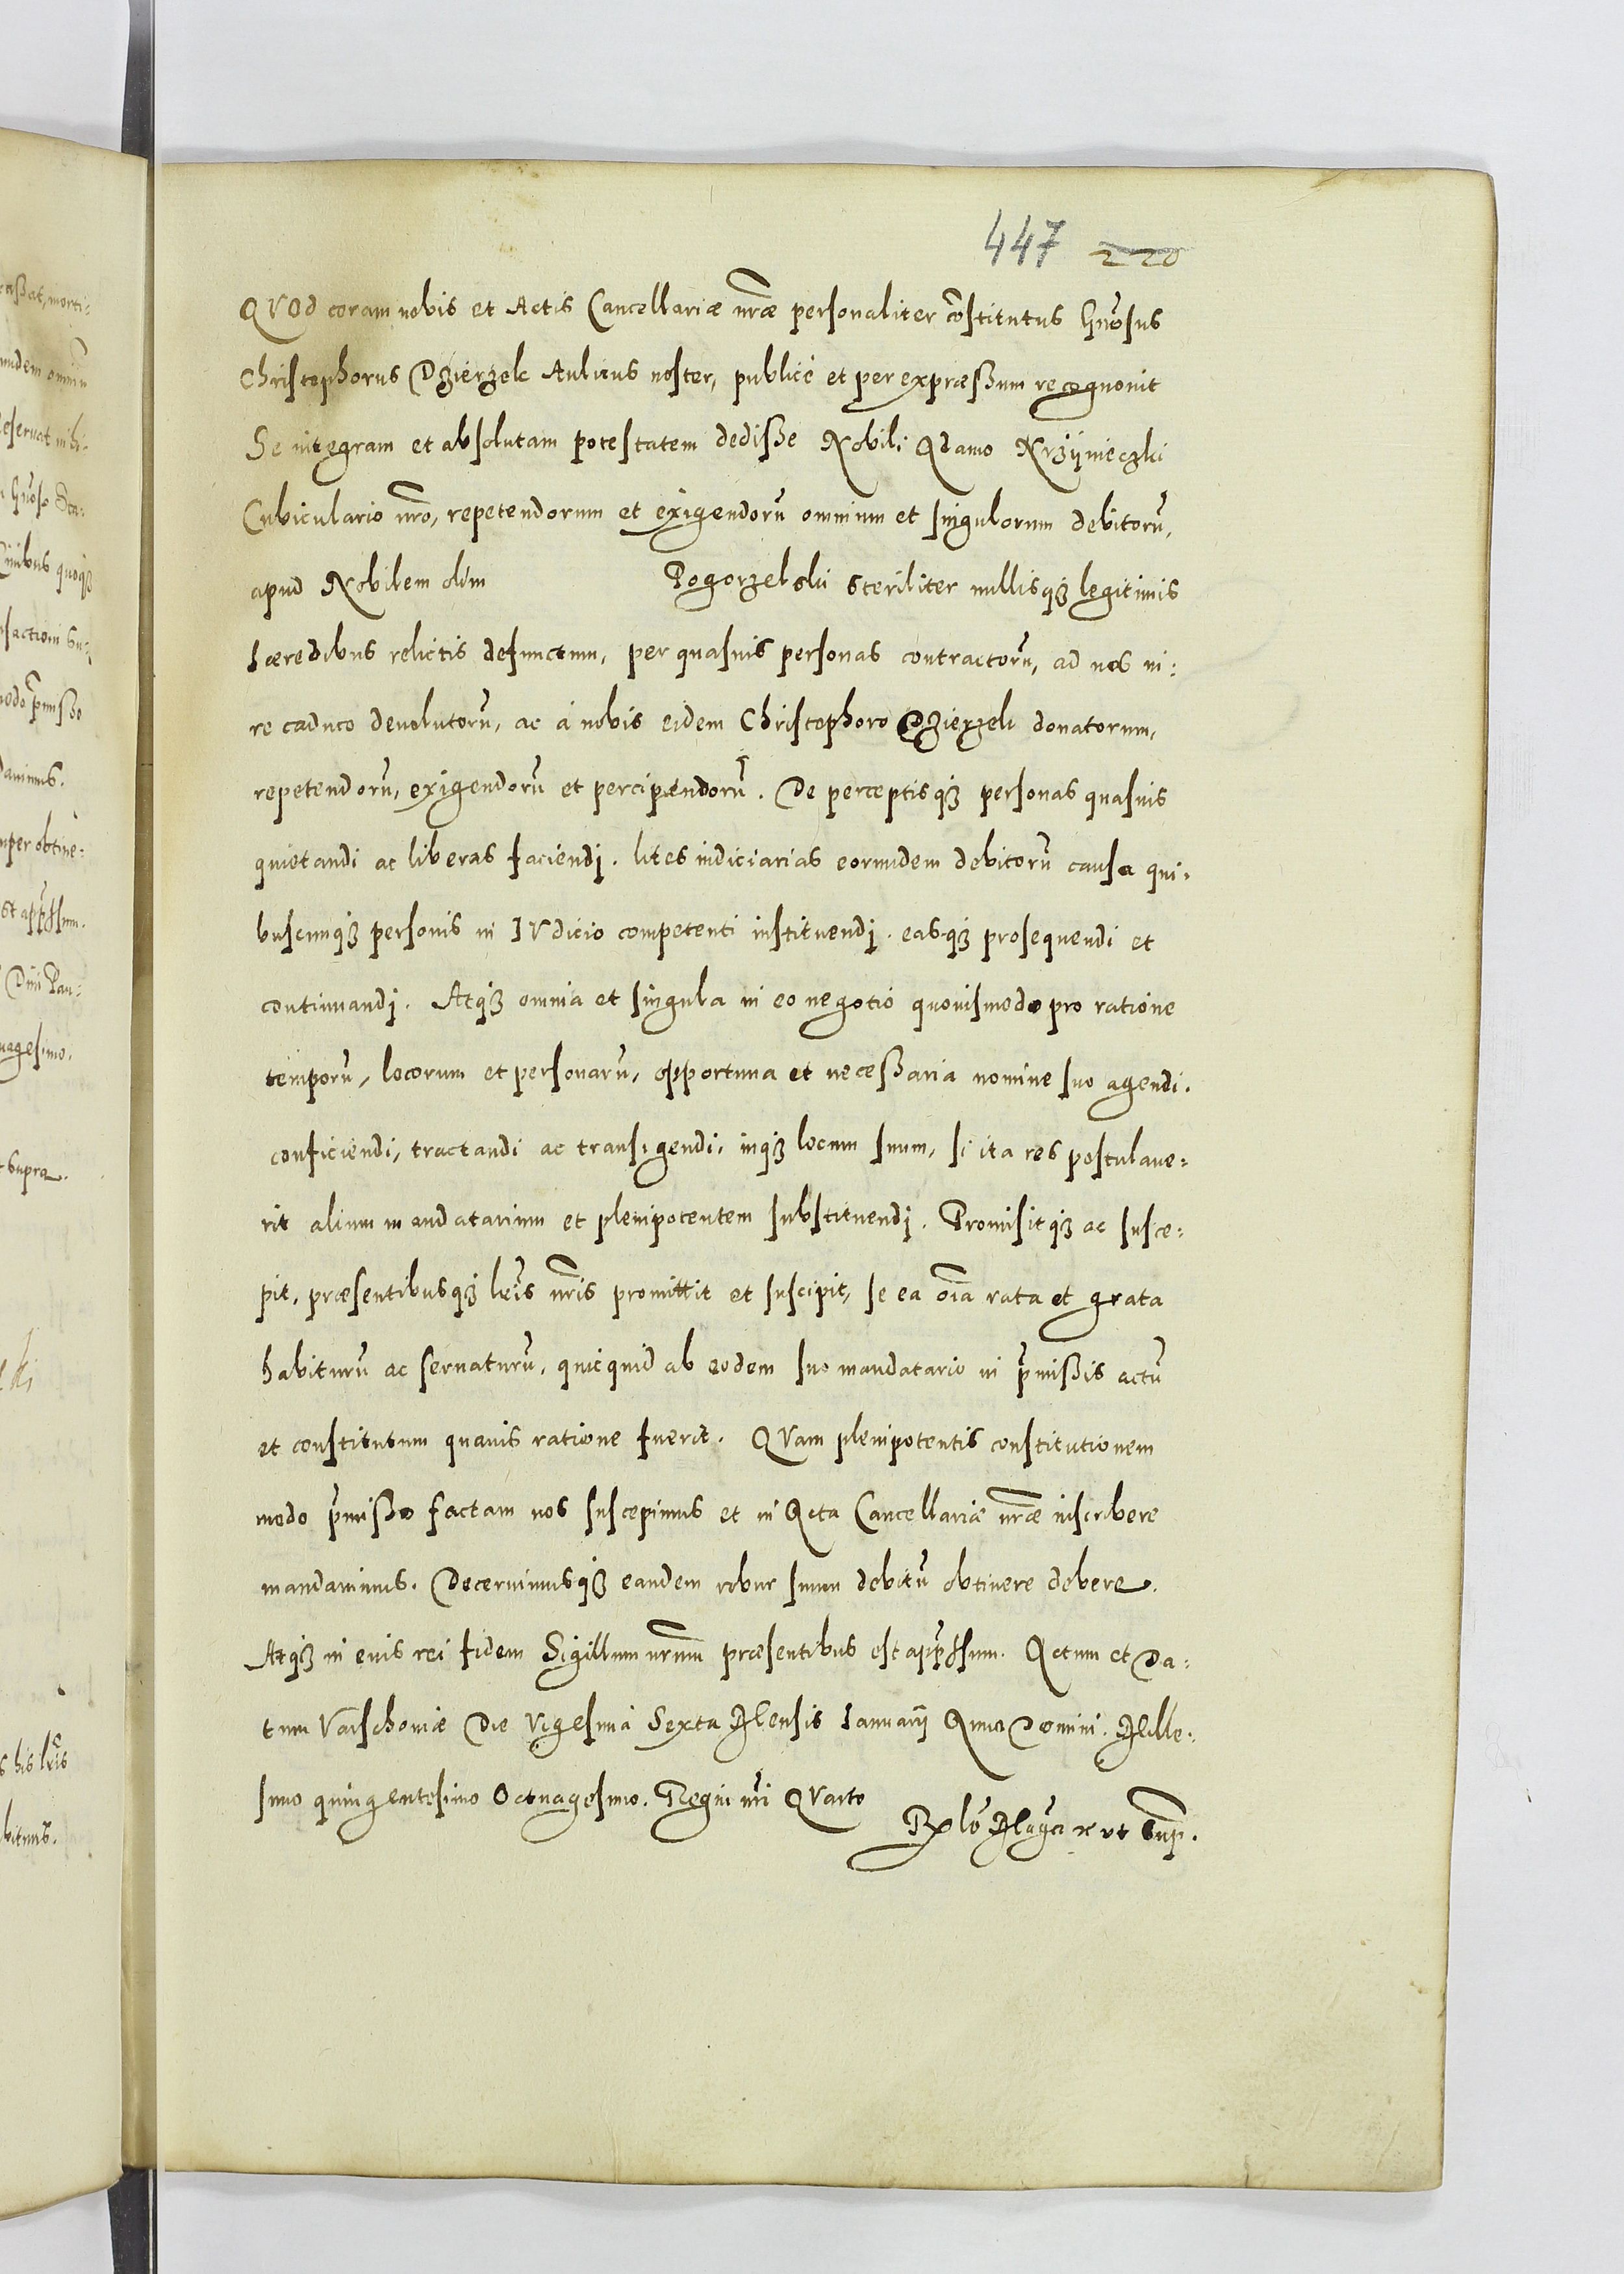 447 220
QVOd coram nobis et Actis Cancellariæ nr̃æ personaliter cõstitutus Gñosus
Christophorus Dzierzek Aulicus noster, publicè et per expræßum recognouit
Se integram et absolutam potestatem dediße Nobili Adamo Krzijnieczki
Cubiculario nr̃o, repetendorum et exigendorũ omnium et singulorum debitorũ,
apud Nobilem olim Pogorzelski steriliter nullisqȝ legitimis
hæredibus relictis defunctum, per quasuis personas contractorũ, ad nos iu:
re caduco deuolutorũ, ac à nobis eidem Christophoro Dzierzek donatorum,
repetendorũ, exigendorũ et percipiendorũ. De perceptisqȝ personas quasuis
quietandi ac liberas faciendj. lites iudiciarias eorundem debitorũ causa qui:
buscunqȝ personis in IVdicio competenti instituendj. easqȝ prosequendi et
continuandj. Atqȝ omnia et singula in eo negotio quouismodo pro ratione
temporũ, locorum et personarũ, opportuna et necessaria nomine suo agendi.
conficiendi, tractandi ac transigendi, inqȝ locum suum, si ita res postulaue:
rit alium mandatarium et plenipotentem substituendj. Promisitqȝ ac susce:
pit, præsentibusqȝ lr̃is nr̃is promittit et suscipit, se ea oĩa rata et grata
habiturũ ac seruaturũ, quicquid ab eodem suo mandatario in p̃mißis actũ
et constitutum quauis ratione fuerit. QVam plenipotentis constitutionem
modo p̃mißo factam nos suscepimus et in Acta Cancellariæ nr̃æ inscribere
mandauimus. Decernimusqȝ eandem robur suum debitũ obtinere debere.
Atqȝ in euis rei fidem Sigillum nr̃um præsentibus est app̃ssum. Actum et Da:
tum Varschouiæ Die Vigesima Sexta Mensis Ianuarij Anno Domini. Mille:
simo quingentesimo Octuagesimo. Regni nr̃i QVarto
ut Sup.